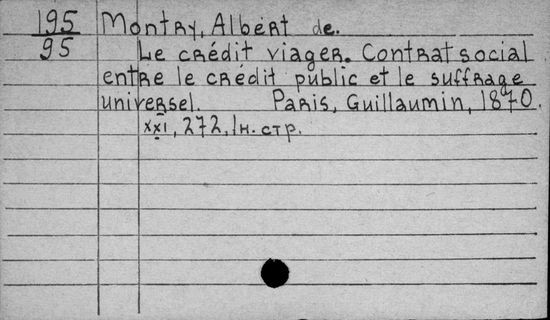 195 Montry, Albert de.
95 Le crédit viager. Contrat social
entre le crédit public et le suffrage
universel. Paris, Guillaumin, 1870.
XXI, 272, 1 н. стр.